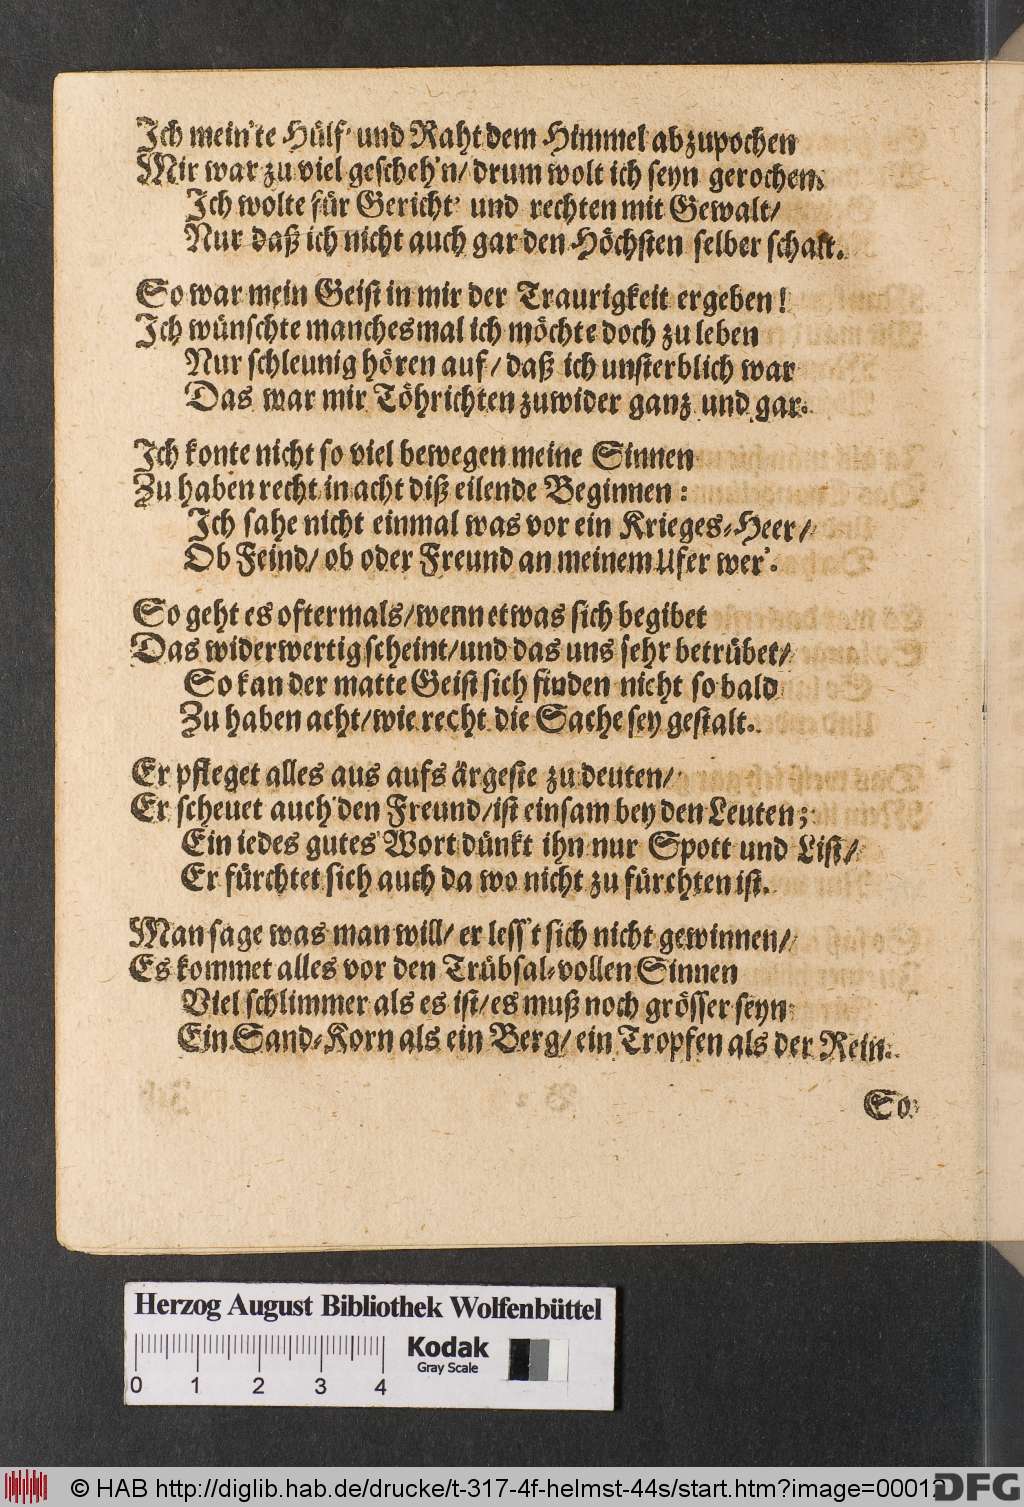 Ich mein'te Hülf' und Raht dem Himmel abzupochen
Mir war zu viel gescheh'n/ drum wolt ich seyn gerochen.
Ich wolte für Gericht' und rechten mit Gewalt/
Nur daß ich nicht auch gar den Höchsten selber schalt.
So war mein Geist in mir der Traurigkeit ergeben!
Ich wünschte manches mal ich möchte doch zu leben
Nur schleunig hören auf/ daß ich unsterblich war
Das war mir Töhrichten zuwider ganz und gar.
Ich konte nicht so viel bewegen meine Sinnen
Zu haben recht in acht diß eilende Beginnen:
Ich sahe nicht einmal was vor ein Krieges-Heer/
Ob Feind/ ob oder Freund an meinem Ufer wer'.
So geht es oftermals/ wenn etwas sich begibet
Das widerwertig scheint/ und das uns sehr betrübet/
So kan der matte Geist sich finden nicht so bald
Zu haben acht/ wie recht die Sache sey gestalt.
Er pfleget alles aus aufs ärgeste zu deuten/
Er scheuet auch den Freund/ ist einsam bey den Leuten;
Ein iedes gutes Wort dünkt ihn nur Spott und List/
Er fürchtet sich auch da wo nicht zu fürchten ist.
Man sage was man will/ er less't sich nicht gewinnen/
Es kommet alles vor den Trübsal-vollen Sinnen
Viel schlimmer als es ist/ es muß noch grösser seyn
Ein Sand-Korn als ein Berg/ ein Tropfen als der Rein.
So
Herzog August Bibliothek Wolfenbüttel
Kodak
Gray Scale
0 1 2 3 4
© HAB http://diglib.hab.de/drucke/t-317-4f-helmst-44s/start.htm?image=00012
DFG